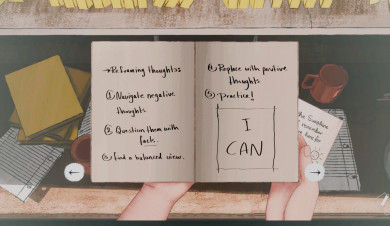 →Reframing thoughts:
① Navigate negative
thoughts
② Question them with
facts.
③ Find a balanced view.
④ Replace with positive
thoughts
⑤ Practice!
I
CAN
remember